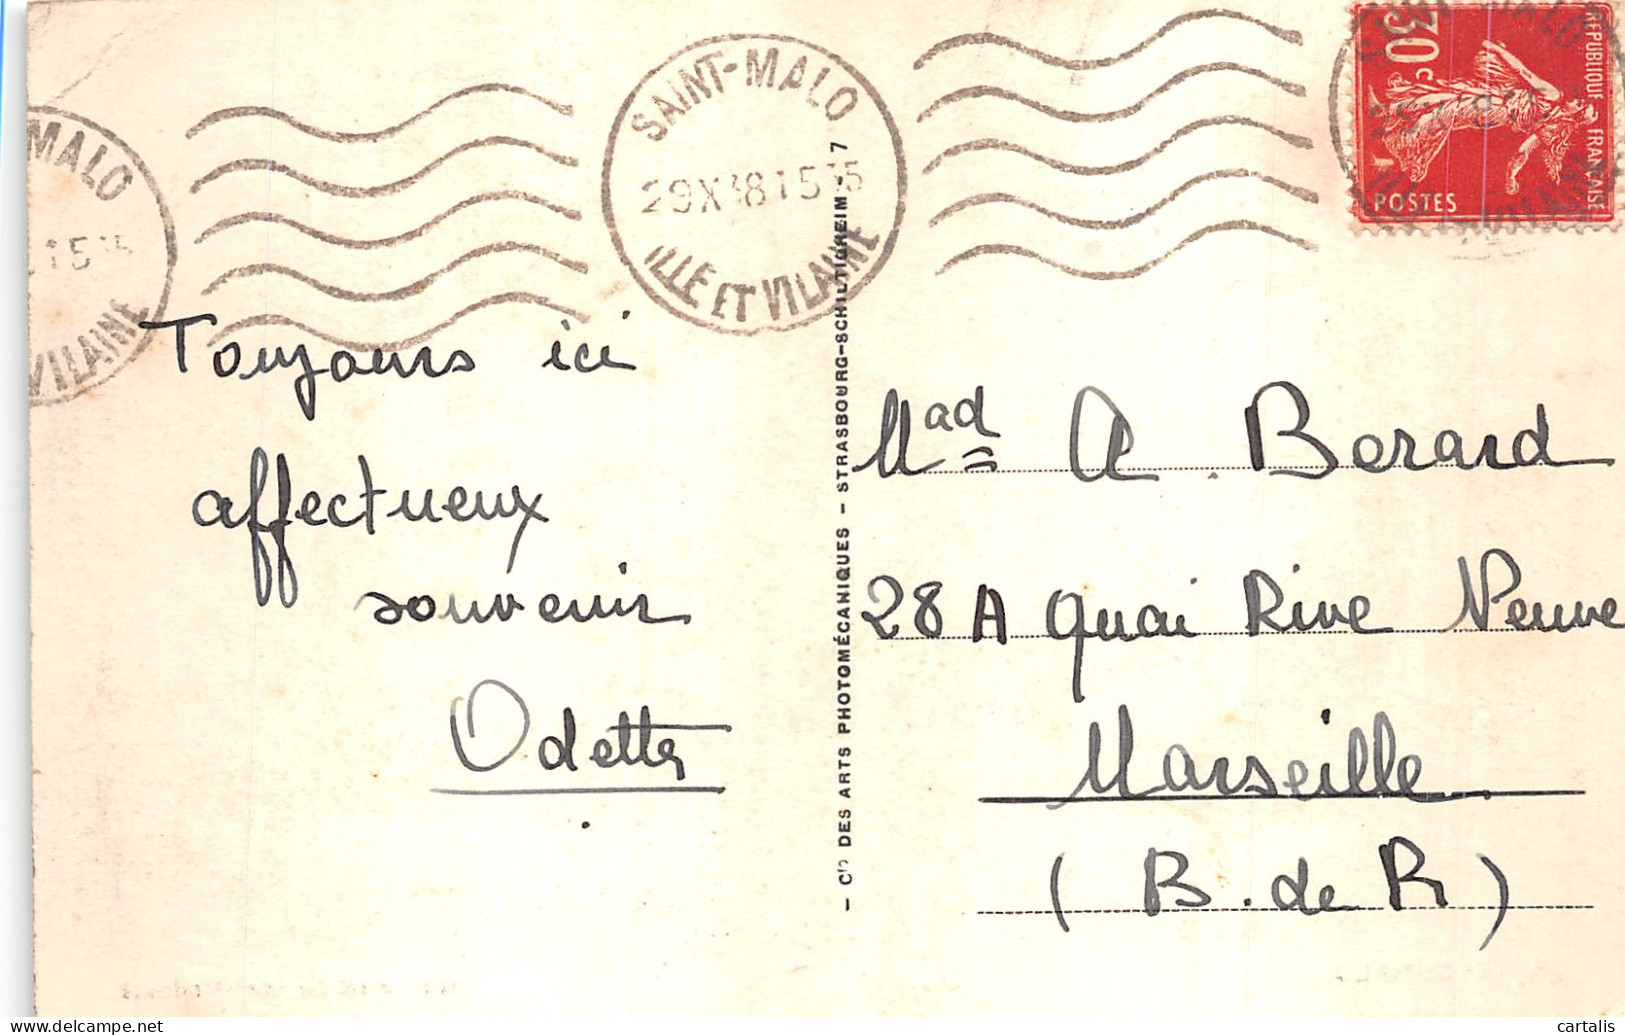 SAINT-MALO
29 X 38 15 15
ILLE ET VILAINE
MALO
15 15
VILAINE
30 c
REPUBLIQUE FRANÇAISE
POSTES
Toujours ici
affectueux
souvenir
Odette
- Cie DES ARTS PHOTOMÉCANIQUES - STRASBOURG-SCHILTIGHEIM - 7
Mad A. Berard
28 A Quai Rive Neuve
Marseille
(B. de R)
delcampe.net
cartalis